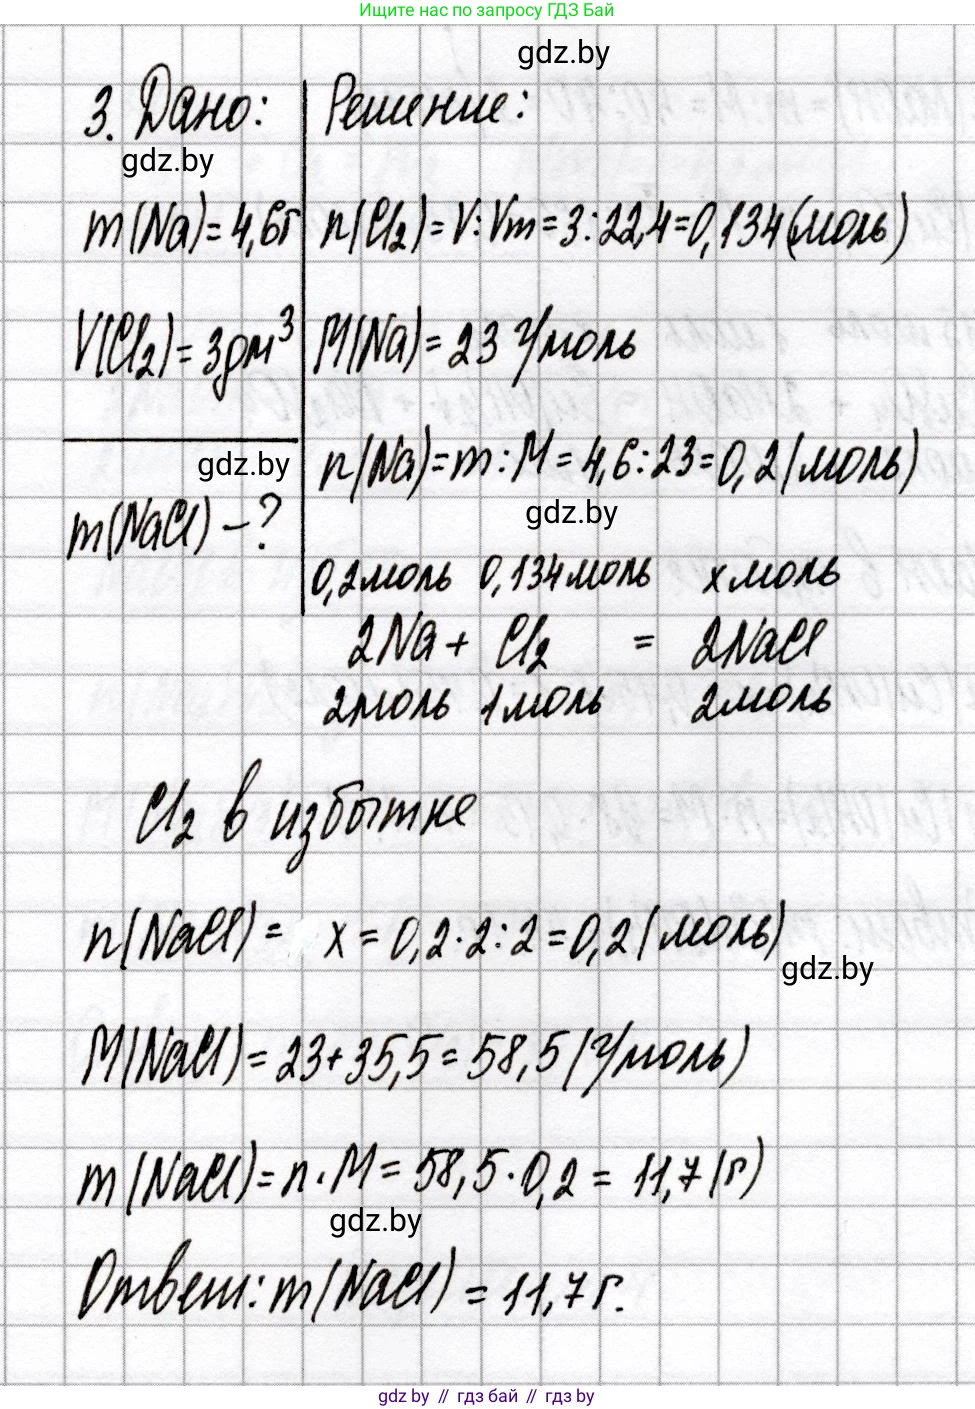 Ищите нас по запросу ГДЗ Бай
gdz.by
3. Дано:
Решение:
gdz.by
m(Na)=4,6г
n(Cl₂)=V:Vm=3:22,4=0,134(моль)
V(Cl₂)=3дм³
M(Na)=23 г/моль
gdz.by
n(Na)=m:M=4,6:23=0,2(моль)
m(NaCl)–?
gdz.by
0,2моль 0,134моль xмоль
2Na+ Cl₂ = 2NaCl
2моль 1моль 2моль
Cl₂ в избытке
n(NaCl)= x=0,2·2:2=0,2(моль)
gdz.by
M(NaCl)=23+35,5=58,5(г/моль)
m(NaCl)=n·M=58,5·0,2=11,7(г)
gdz.by
Ответ: m(NaCl)=11,7г.
gdz.by // гдз бай // гдз by